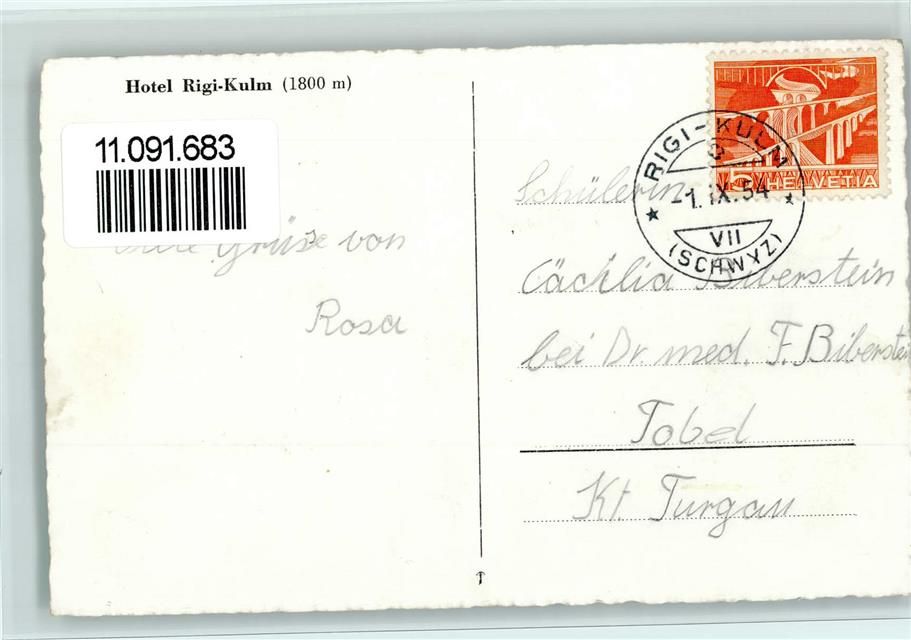 Hotel Rigi-Kulm (1800 m)
11.091.683
Grüsse von
Rosa
5 HELVETIA
RIGI-KULM
-1.IX.54
VII
(SCHWYZ)
Schülerin
Cäcilia Biberstein
bei Dr. med. F. Biberstein
Tobel
Kt. Turgau